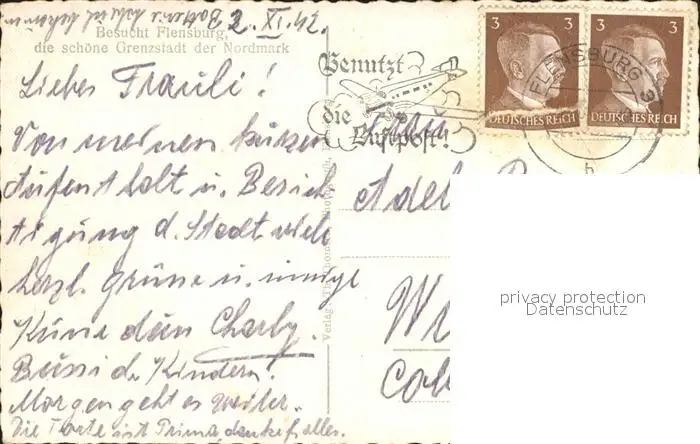 2. XI. 42.
Besucht Flensburg,
die schöne Grenzstadt der Nordmark
Liebes Frauli!
Von meinem kurzen
Aufenthalt u. Besich
tigung d. Stadt viele
herzl. Grüsse u. innige
Küsse dein Charly.
Bussi d. Kindern!
Morgen geht es weiter.
Die Torte ist Prima danke f. alles.
Benutzt
die
Luftpost!
3 3
DEUTSCHES REICH
3 3
DEUTSCHES REICH
FLENSBURG
b
Adel
privacy protection
Datenschutz